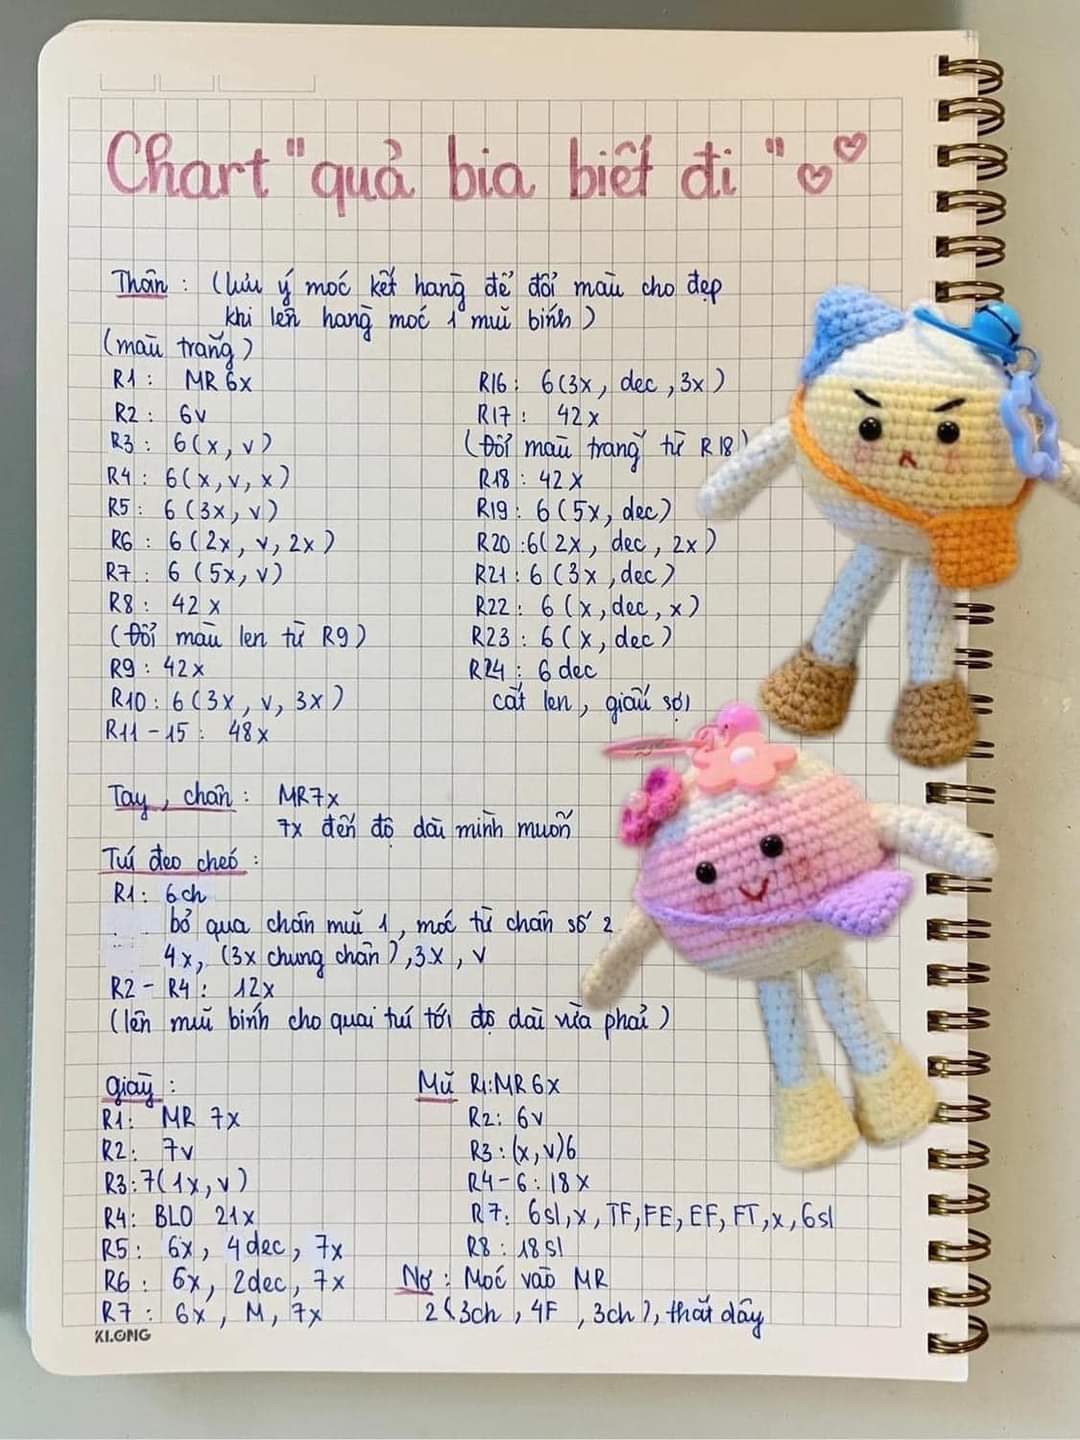 Chart "quả bia biết đi"
Thân : (lưu ý móc kết hàng để đổi màu cho đẹp
khi lên hàng móc 1 mũi bính)
(màu trắng)
R1 : MR 6x
R2 : 6v
R3 : 6(x, v)
R4 : 6(x, v, x)
R5 : 6 (3x, v)
R6 : 6(2x, v, 2x)
R7 : 6 (5x, v)
R8 : 42 x
(Đổi màu len từ R9)
R9 : 42x
R10 : 6(3x, v, 3x)
R11 - 15 : 48x
R16 : 6(3x, dec, 3x)
R17 : 42x
(Đổi màu trắng từ R18)
R18 : 42x
R19 : 6(5x, dec)
R20 : 6(2x, dec, 2x)
R21 : 6(3x, dec)
R22 : 6(x, dec, x)
R23 : 6(x, dec)
R24 : 6 dec
cắt len, giấu sợi
Tay, chân : MR7x
7x đến độ dài mình muốn
Túi đeo chéo :
R1: 6ch
bỏ qua chân mũi 1, móc từ chân số 2
4x, (3x chung chân), 3x, v
R2 - R4 : 12x
(lên mũi bính cho quai túi tới độ dài vừa phải)
Giày :
R1: MR 7x
R2: 7v
R3: 7(1x, v)
R4: BLO 21x
R5 : 6x, 4dec, 7x
R6 : 6x, 2dec, 7x
R7 : 6x, M, 7x
Mũ R1: MR 6x
R2: 6v
R3 : (x, v)6
R4-6 : 18x
R7: 6sl, x, TF, FE, EF, FT, x, 6sl
R8 : 18sl
Nơ : Móc vào MR
2(3ch, 4F, 3ch), thắt dây
KLONG